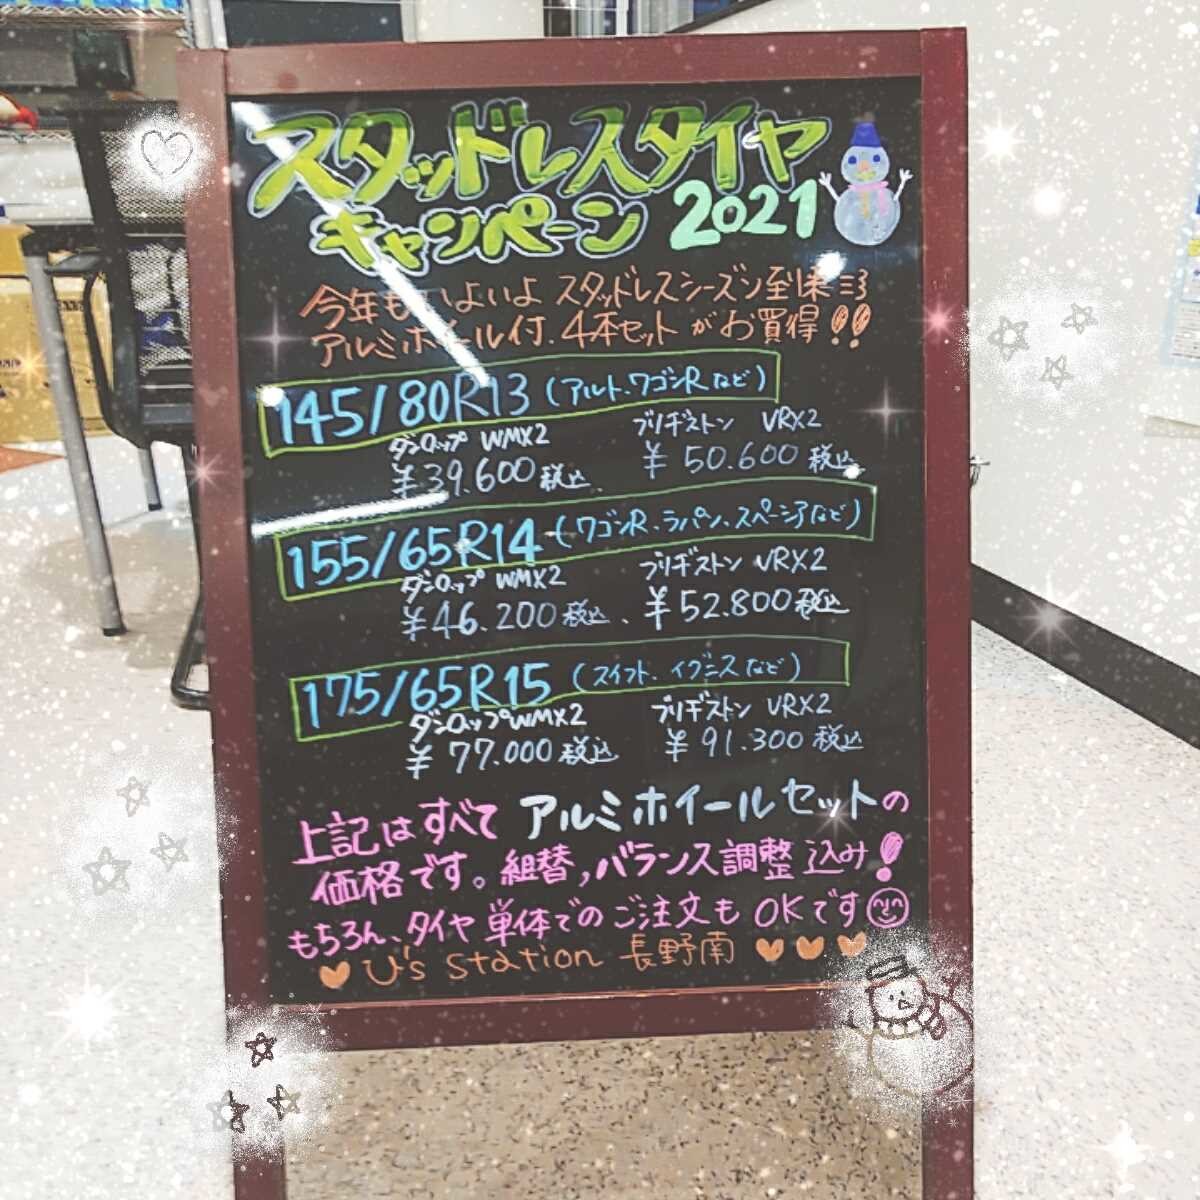 スタッドレスタイヤ
キャンペーン 2021
今年もいよいよ スタッドレスシーズン到来
アルミホイール付、4本セット がお買得!!
145/80R13 (アルト、ワゴンRなど)
ダンロップ WMX2 ブリヂストン VRX2
¥39.600税込、 ¥50.600税込
155/65R14 (ワゴンR、ラパン、スペーシアなど)
ダンロップ WMX2 ブリヂストン VRX2
¥46.200税込、 ¥52.800税込
175/65R15 (スイフト、イグニスなど)
ダンロップWMX2 ブリヂストン VRX2
¥77.000税込 ¥91.300税込
上記はすべて アルミホイールセットの
価格です。組替,バランス調整込み!
もちろん、タイヤ単体でのご注文もOKです
U's Station 長野南